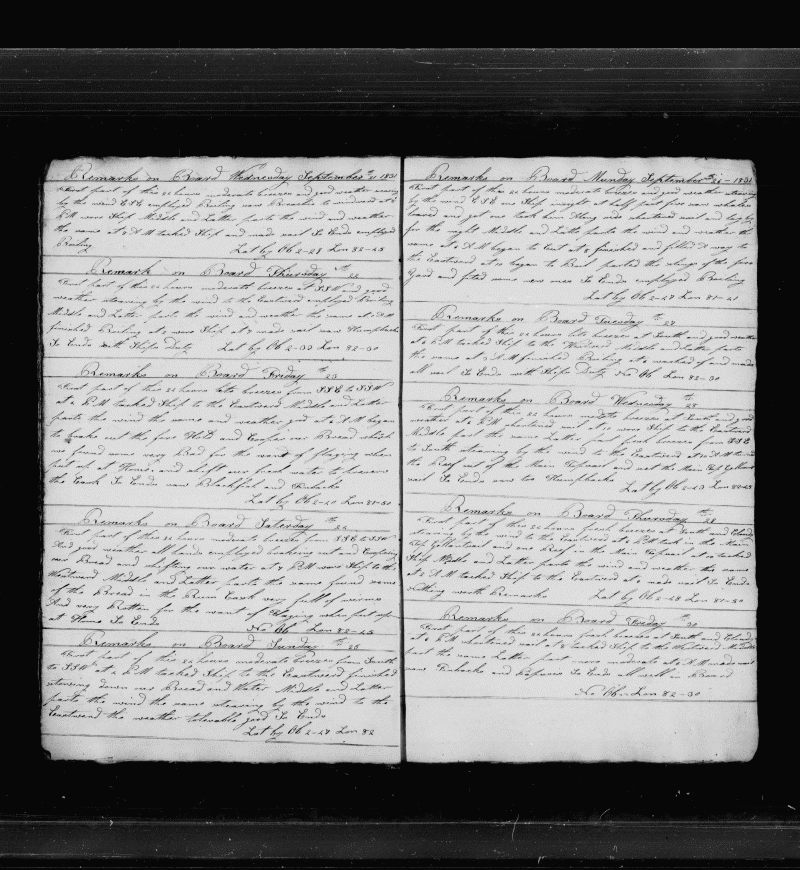 Remarks on Board Wednesday September 21 1831
First part of this 24 hours moderate breezes and good weather steering
by the wind ESE employed Boiling saw Breaches to windward at 2
PM wore Ship Middle and Latter parts the wind and weather
the same at AM tacked Ship and made sail So Ends employed
Boiling Lat by Ob 2-28 Lon 82-25
Remark on Board Thursday th 22
First part of this 24 hours moderate breezes at SSW and good
weather steering by the wind to the Eastward employed Boiling
Middle and Latter parts the wind and weather the same at AM
finished Boiling at 2 wore Ship at 3 made sail saw Humpbacks
So Ends with Ships Duty Lat by Ob 2-30 Lon 82-30
Remarks on Board Friday th 23
First part of this 24 hours late breezes from SSE to SSW
at 2 PM tacked Ship to the Eastward Middle and Latter
parts the wind the same and weather good at AM began
to brake out the fore Hold and Cooper our Bread which
we found some very Bad for the want of flaging when
put up at Home and shift our fresh water to preserve
the Cask So Ends saw Blackfish and Finbacks
Lat by Ob 2-20 Lon 81-50
Remarks on Board Saterday th 24
First part of this 24 hours moderate breezes from SSE to SSW
And good weather all hands employed breaking out and Coopering
our Bread and shifting our water at PM wore Ship to the
Westward Middle and Latter parts the same found some
of the Bread in the Rum Cask very full of worms
And very Rotten for the want of Flaging when put up
at Home So Ends No Ob Lon 82-25
Remarks on Board Sunday th 25
First part of this 24 hours moderate breezes from South
to SSW at 2 PM tacked Ship to the Eastward finished
stowing down our Bread and Water Middle and Latter
parts the wind the same steering by the wind to the
Eastward the weather tolerable good So Ends
Lat by Ob 2-27 Lon 82
Remarks on Board Munday September th 26 - 1831
First part of this 24 hours moderate breezes and good weather steering
by the wind ESE one Ship insight at half past five saw whales
lowered and got one took him Along side shortened sail and lay by
for the night Middle and Latte parts the wind and weather the
same at AM began to Cut at finished and filled A way to
the Eastward at 10 began to Boil parted the slings of the fore
Yard and fited some new ones So Ends employed Boiling
Lat by Ob 2-23 Lon 81-21
Remarks on Board Tuesday th 27
First part of this 24 hours late breezes at South and good weather
at PM tacked Ship to the Westward Middle and Latter parts
the same at AM finished Boiling at washed of and made
all sail So Ends with Ships Duty No Ob Lon 82-30
Remarks on Board Wednesday th 28
First part of this 24 hours moderate breezes at South and good
weather at PM shortened sail at 10 wore Ship to the Eastward
Middle part the same Latter part fresh breezes from SSE
to South steering by the wind to the Eastward at AM turned
the Reef out of the Main Topsail and set the Main Top Gallant
sail So Ends saw too Humpbacks Lat by Ob 2-23 Lon 82-25
Remarks on Board Thursday th 29
First part of this 24 hours fresh breezes at South and Cloudy
steering by the wind to the Eastward at PM took in the Main
Top Gallantsail and one Reef in the Main Topsail at 10 tacked
Ship Middle and Latter parts the wind and weather the same
at AM tacked Ship to the Eastward at made sail So Ends
Nothing worth Remarke Lat by Ob 2-28 Lon 81-50
Remarks on Board Friday th 30
First part of this 24 hours fresh breezes at South and Cloudy
at PM shortened sail at 8 tacked Ship to the Westward Middle
part the same Latter part more moderate at AM made sail
saw Finbacks and So Ends all well on Board
No Ob - Lon 82-30